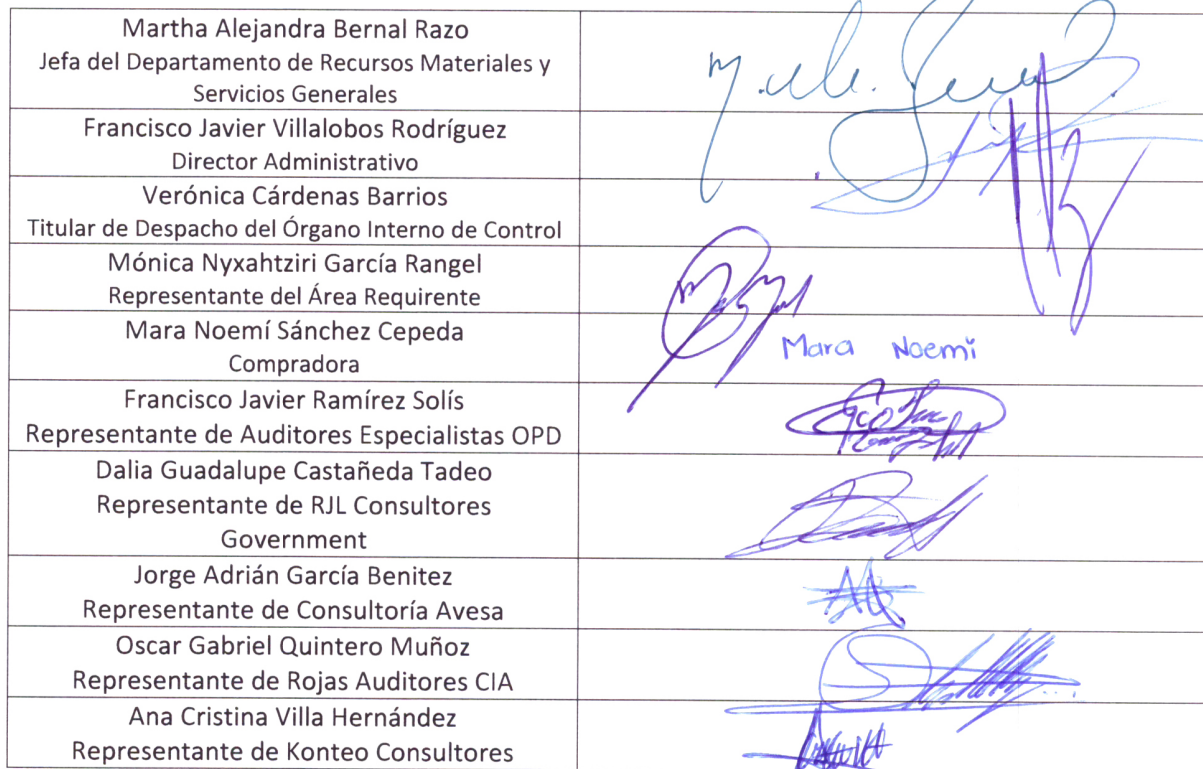 Martha Alejandra Bernal Razo
Jefa del Departamento de Recursos Materiales y
Servicios Generales
Francisco Javier Villalobos Rodríguez
Director Administrativo
Verónica Cárdenas Barrios
Titular de Despacho del Órgano Interno de Control
Mónica Nyxahtziri García Rangel
Representante del Área Requirente
Mara Noemí Sánchez Cepeda
Compradora
Mara Noemi
Francisco Javier Ramírez Solís
Representante de Auditores Especialistas OPD
Dalia Guadalupe Castañeda Tadeo
Representante de RJL Consultores
Government
Jorge Adrián García Benitez
Representante de Consultoría Avesa
Oscar Gabriel Quintero Muñoz
Representante de Rojas Auditores CIA
Ana Cristina Villa Hernández
Representante de Konteo Consultores